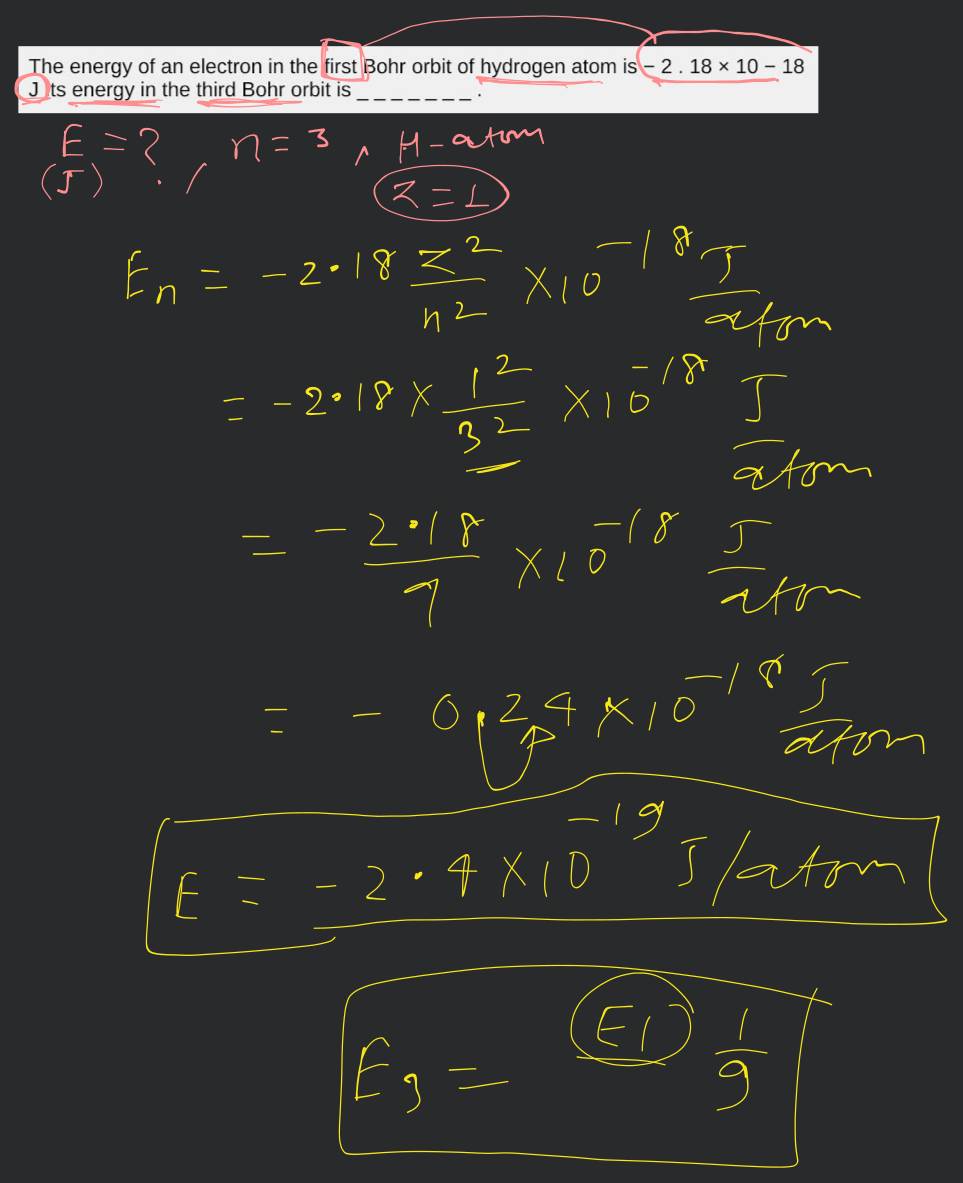 The energy of an electron in the first Bohr orbit of hydrogen atom is − 2 . 18 × 10 − 18
J Its energy in the third Bohr orbit is _ _ _ _ _ _ _ .
E = ? , n = 3 , H-atom
(J)
Z = 1
En = -2.18 Z²/n² × 10⁻¹⁸ J/atom
= -2.18 × 1²/3² × 10⁻¹⁸ J/atom
= -2.18/9 × 10⁻¹⁸ J/atom
= - 0.24 × 10⁻¹⁸ J/atom
E = -2.4 × 10⁻¹⁹ J/atom
E3 = E1 1/9